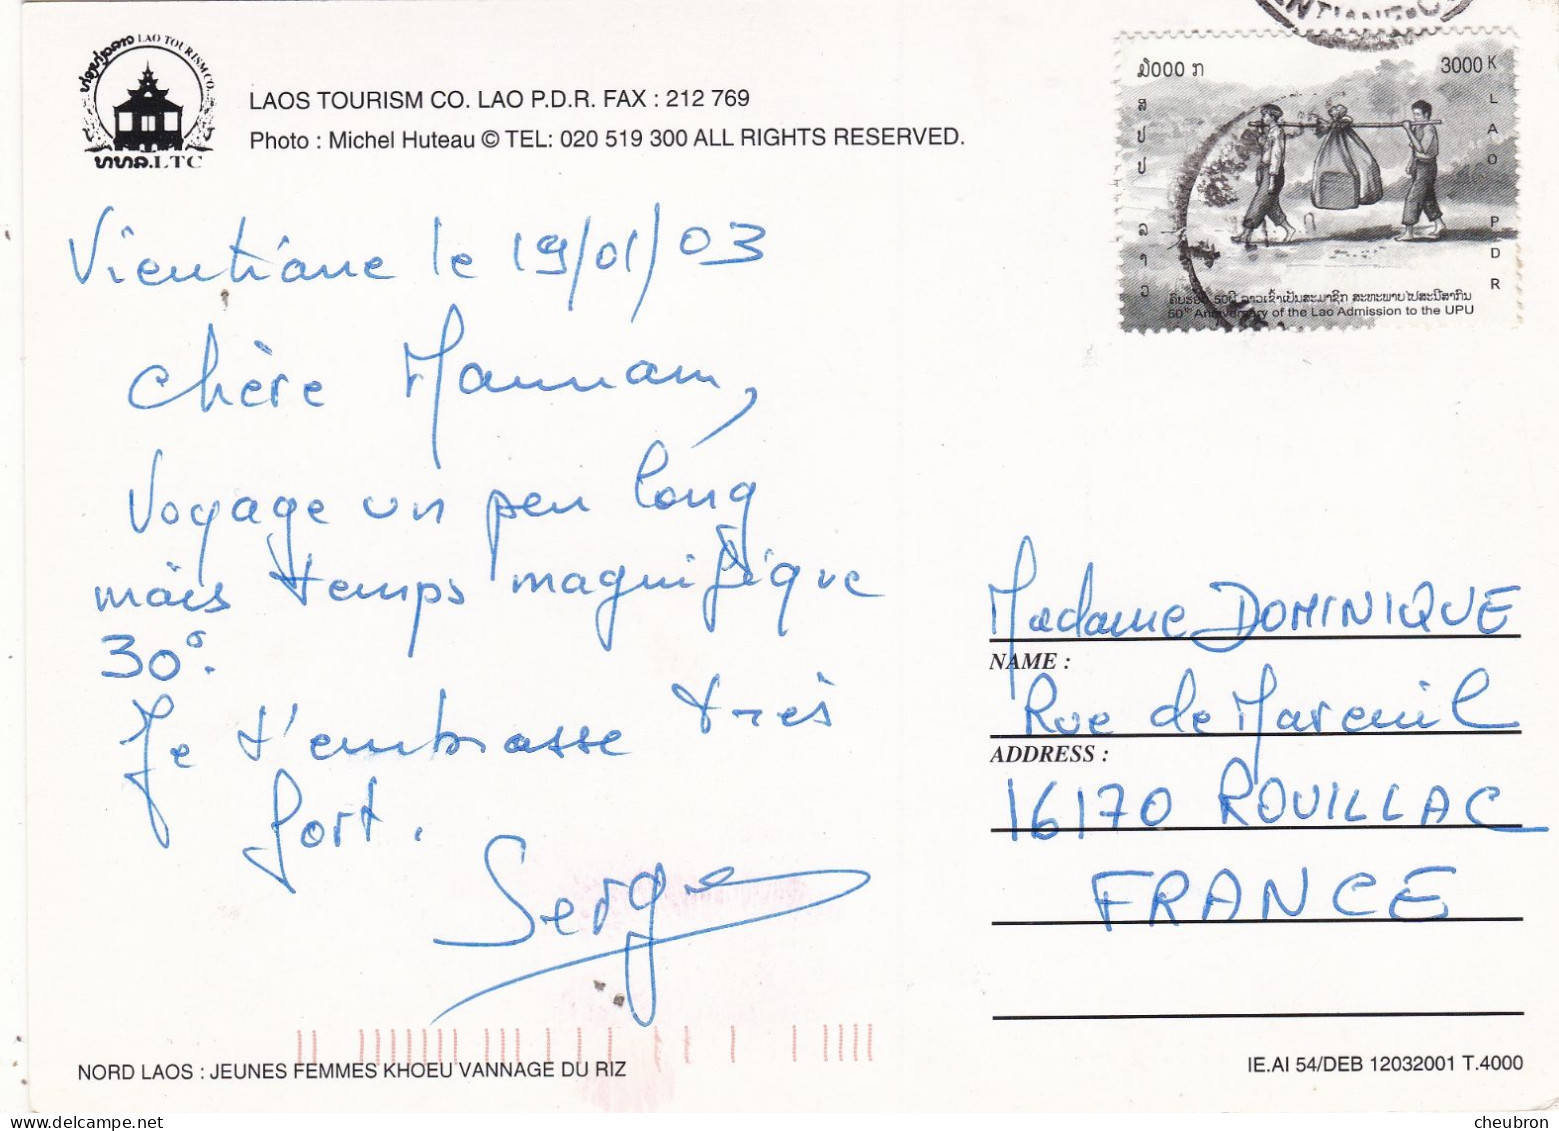 ທ່ອງທ່ຽວລາວ LAO TOURISM CO.
ທທລ.LTC
LAOS TOURISM CO. LAO P.D.R. FAX : 212 769
Photo : Michel Huteau © TEL: 020 519 300 ALL RIGHTS RESERVED.
໓000 ກ
3000 K
ສປປ ລາວ
LAO PDR
50 ປີ ລາວເຂົ້າເປັນສະມາຊິກ ສະຫະພາບໄປສະນີສາກົນ
50th Anniversary of the Lao Admission to the UPU
Vientiane le 19/01/03
Chère Mannam,
Voyage un peu long
mais temps magnifique
30°.
Je t'embrasse très
fort.
Serge
Madame DOMINIQUE
NAME :
Rue de Mareuil
ADDRESS :
16170 ROUILLAC
FRANCE
NORD LAOS : JEUNES FEMMES KHOEU VANNAGE DU RIZ
IE.AI 54/DEB 12032001 T.4000
cheubron